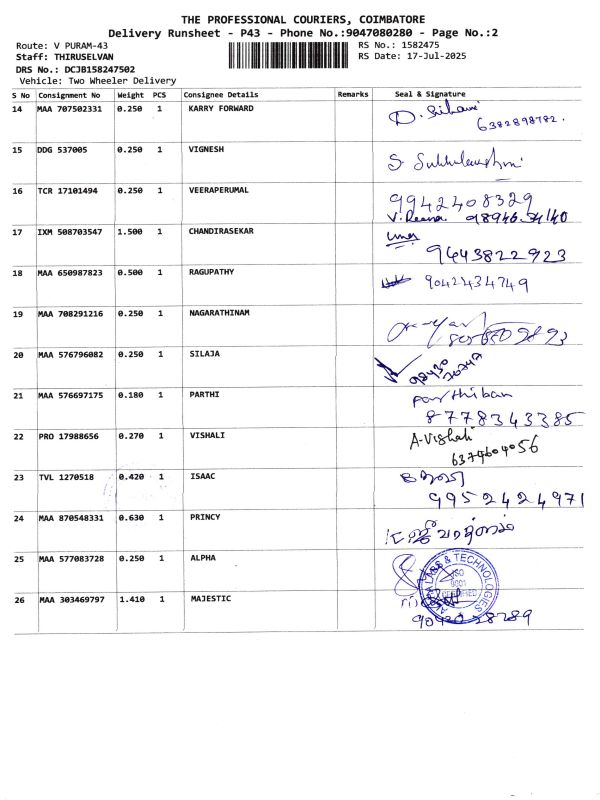 THE PROFESSIONAL COURIERS, COIMBATORE
Delivery Runsheet - P43 - Phone No.:9047080280 - Page No.:2
Route: V PURAM-43
RS No.: 1582475
Staff: THIRUSELVAN
RS Date: 17-Jul-2025
DRS No.: DCJB158247502
Vehicle: Two Wheeler Delivery
S No Consignment No Weight PCS Consignee Details Remarks Seal & Signature
14 MAA 707502331 0.250 1 KARRY FORWARD
6382898782.
15 DDG 537005 0.250 1 VIGNESH
16 TCR 17101494 0.250 1 VEERAPERUMAL 9942408329
17 IXM 508703547 1.500 1 CHANDIRASEKAR
9643822923
18 MAA 650987823 0.500 1 RAGUPATHY 9042434749
19 MAA 708291216 0.250 1 NAGARATHINAM
20 MAA 576796082 0.250 1 SILAJA
21 MAA 576697175 0.180 1 PARTHI Parthiban
8778343385
22 PRO 17988656 0.270 1 VISHALI A-Vishali
6374604056
23 TVL 1270518 0.420 1 ISAAC
9952424971
24 MAA 870548331 0.630 1 PRINCY
25 MAA 577083728 0.250 1 ALPHA
LABS & TECHNOLOGIES
ISO
9001
CERTIFIED
26 MAA 303469797 1.410 1 MAJESTIC